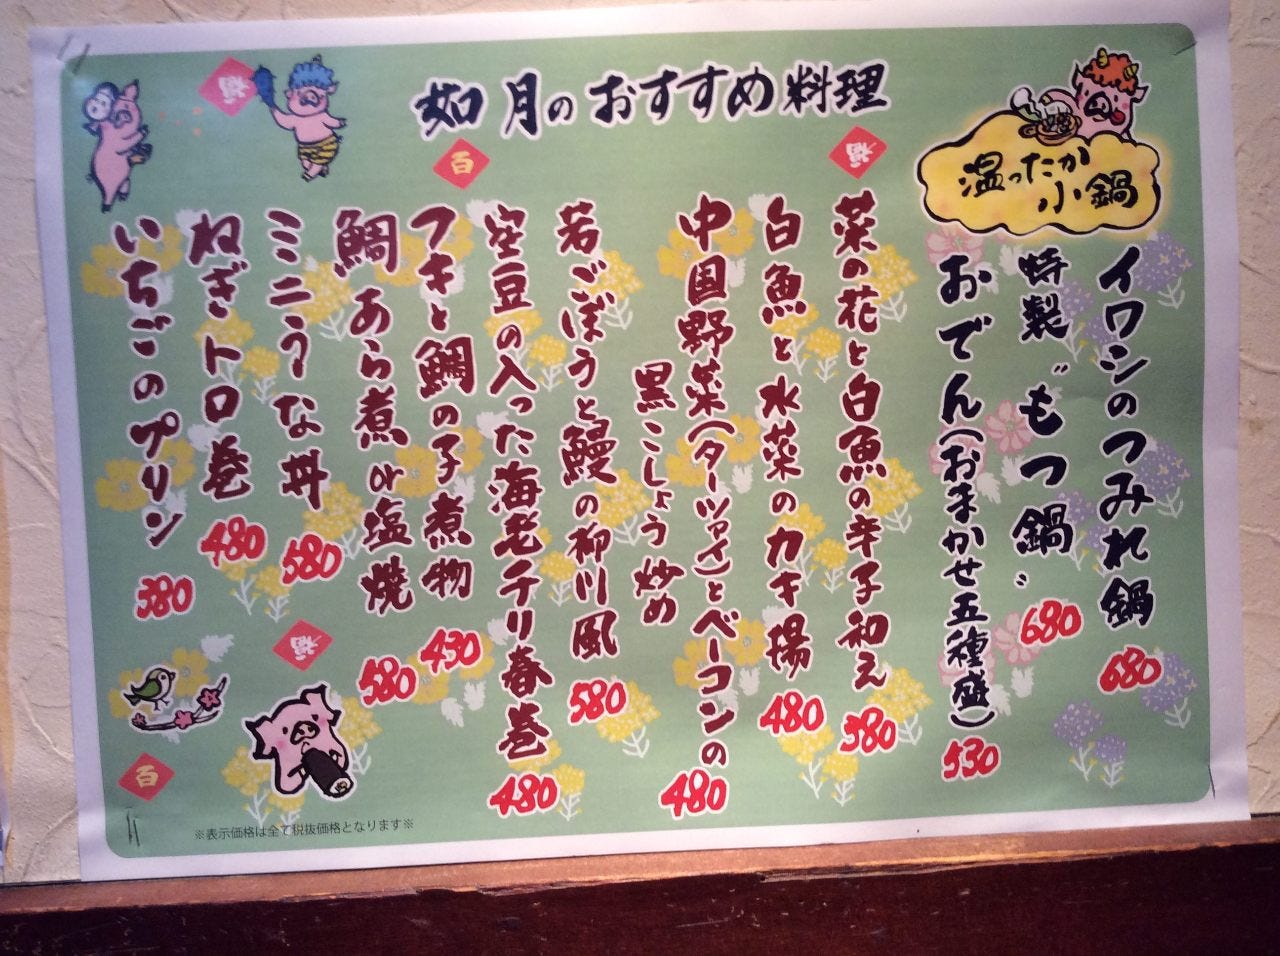 如月のおすすめ料理
温ったか
小鍋
イワシのつみれ鍋
680
特製〝もつ鍋〟
680
おでん(おまかせ五種盛)
530
菜の花と白魚の辛子和え
380
白魚と水菜のカキ揚
480
中国野菜(ターツァイ)とベーコンの
黒こしょう炒め
480
若ごぼうと鰻の柳川風
580
空豆の入った海老チリ春巻
480
フキと鯛の子煮物
430
鯛あら煮or塩焼
580
ミニうな丼
580
ねぎトロ巻
480
いちごのプリン
380
百
百
※表示価格は全て税抜価格となります※